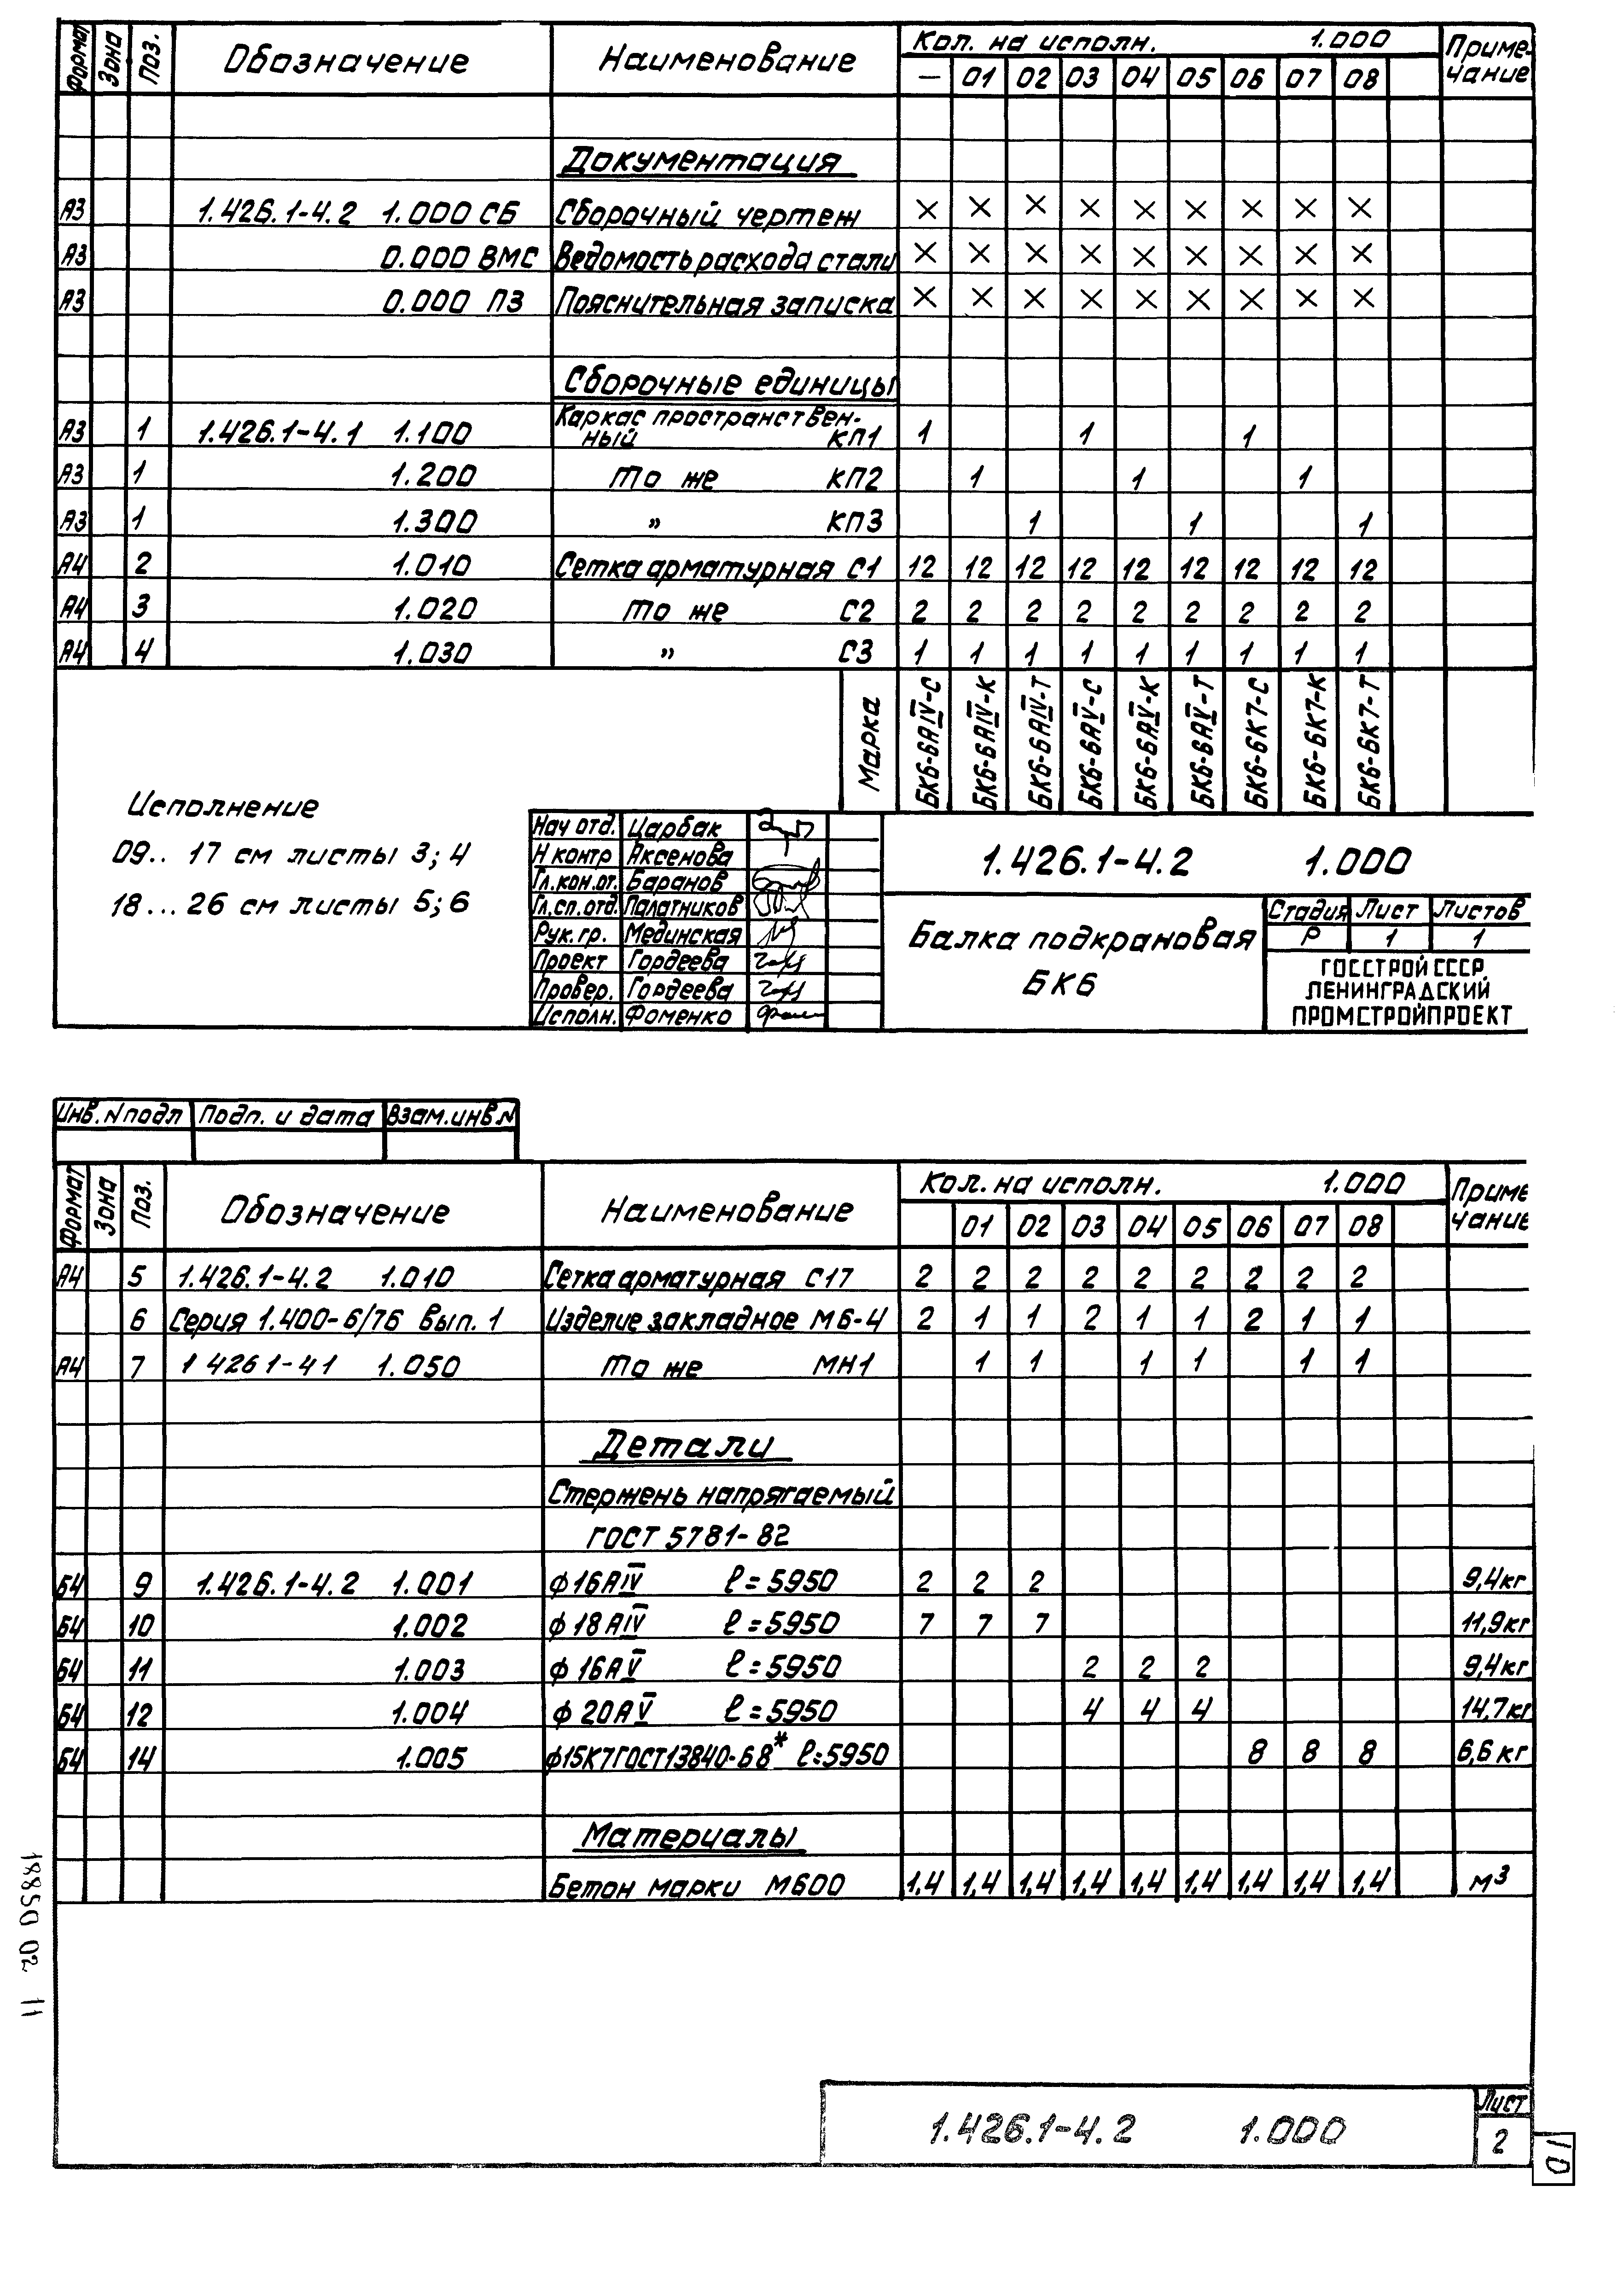 Формат Зона Поз. Обозначение Наименование Кол. на исполн. 1.000 Приме-чание
— 01 02 03 04 05 06 07 08
Документация
А3 1.426.1-4.2 1.000 СБ Сборочный чертеж × × × × × × × × ×
А3 0.000 ВМС Ведомость расхода стали × × × × × × × × ×
А3 0.000 ПЗ Пояснительная записка × × × × × × × × ×
Сборочные единицы
А3 1 1.426.1-4.1 1.100 Каркас пространствен-
ный КП1 1 1 1
А3 1 1.200 то же КП2 1 1 1
А3 1 1.300 " КП3 1 1 1
А4 2 1.010 Сетка арматурная С1 12 12 12 12 12 12 12 12 12
А4 3 1.020 то же С2 2 2 2 2 2 2 2 2 2
А4 4 1.030 " С3 1 1 1 1 1 1 1 1 1
Марка БК6-6АIV-С БК6-6АIV-К БК6-6АIV-Т БК6-6АV-С БК6-6АV-К БК6-6АV-Т БК6-6К7-С БК6-6К7-К БК6-6К7-Т
Исполнение
09.. 17 см листы 3; 4
18... 26 см листы 5; 6
Нач отд. Царбак
Н контр Аксенова
Гл.кон.от. Баранов
Гл.сп.отд. Палатников
Рук.гр. Мединская
Проект Гордеева
Провер. Гордеева
Исполн. Фоменко
1.426.1-4.2 1.000
Балка подкрановая
БК6
Стадия Лист Листов
Р 1 1
ГОССТРОЙ СССР
ЛЕНИНГРАДСКИЙ
ПРОМСТРОЙПРОЕКТ
Инв. N подл Подп. и дата Взам.инв.N
Формат Зона Поз. Обозначение Наименование Кол. на исполн. 1.000 Приме чание
01 02 03 04 05 06 07 08
А4 5 1.426.1-4.2 1.010 Сетка арматурная С17 2 2 2 2 2 2 2 2 2
6 Серия 1.400-6/76 Вып. 1 Изделие закладное М6-4 2 1 1 2 1 1 2 1 1
А4 7 1 426 1-4 1 1.050 то же МН1 1 1 1 1 1 1
Детали
Стержень напрягаемый
ГОСТ 5781-82
Б4 9 1.426.1-4.2 1.001 ф16АIV ℓ=5950 2 2 2 9,4кг
Б4 10 1.002 ф18АIV ℓ=5950 7 7 7 11,9кг
Б4 11 1.003 ф16АV ℓ=5950 2 2 2 9,4кг
Б4 12 1.004 ф20АV ℓ=5950 4 4 4 14,7кг
Б4 14 1.005 ф15К7ГОСТ13840-68* ℓ=5950 8 8 8 6,6 кг
Материалы
Бетон марки М600 1,4 1,4 1,4 1,4 1,4 1,4 1,4 1,4 1,4 м³
18850 02 11
1.426.1-4.2 1.000
Лист
2
10